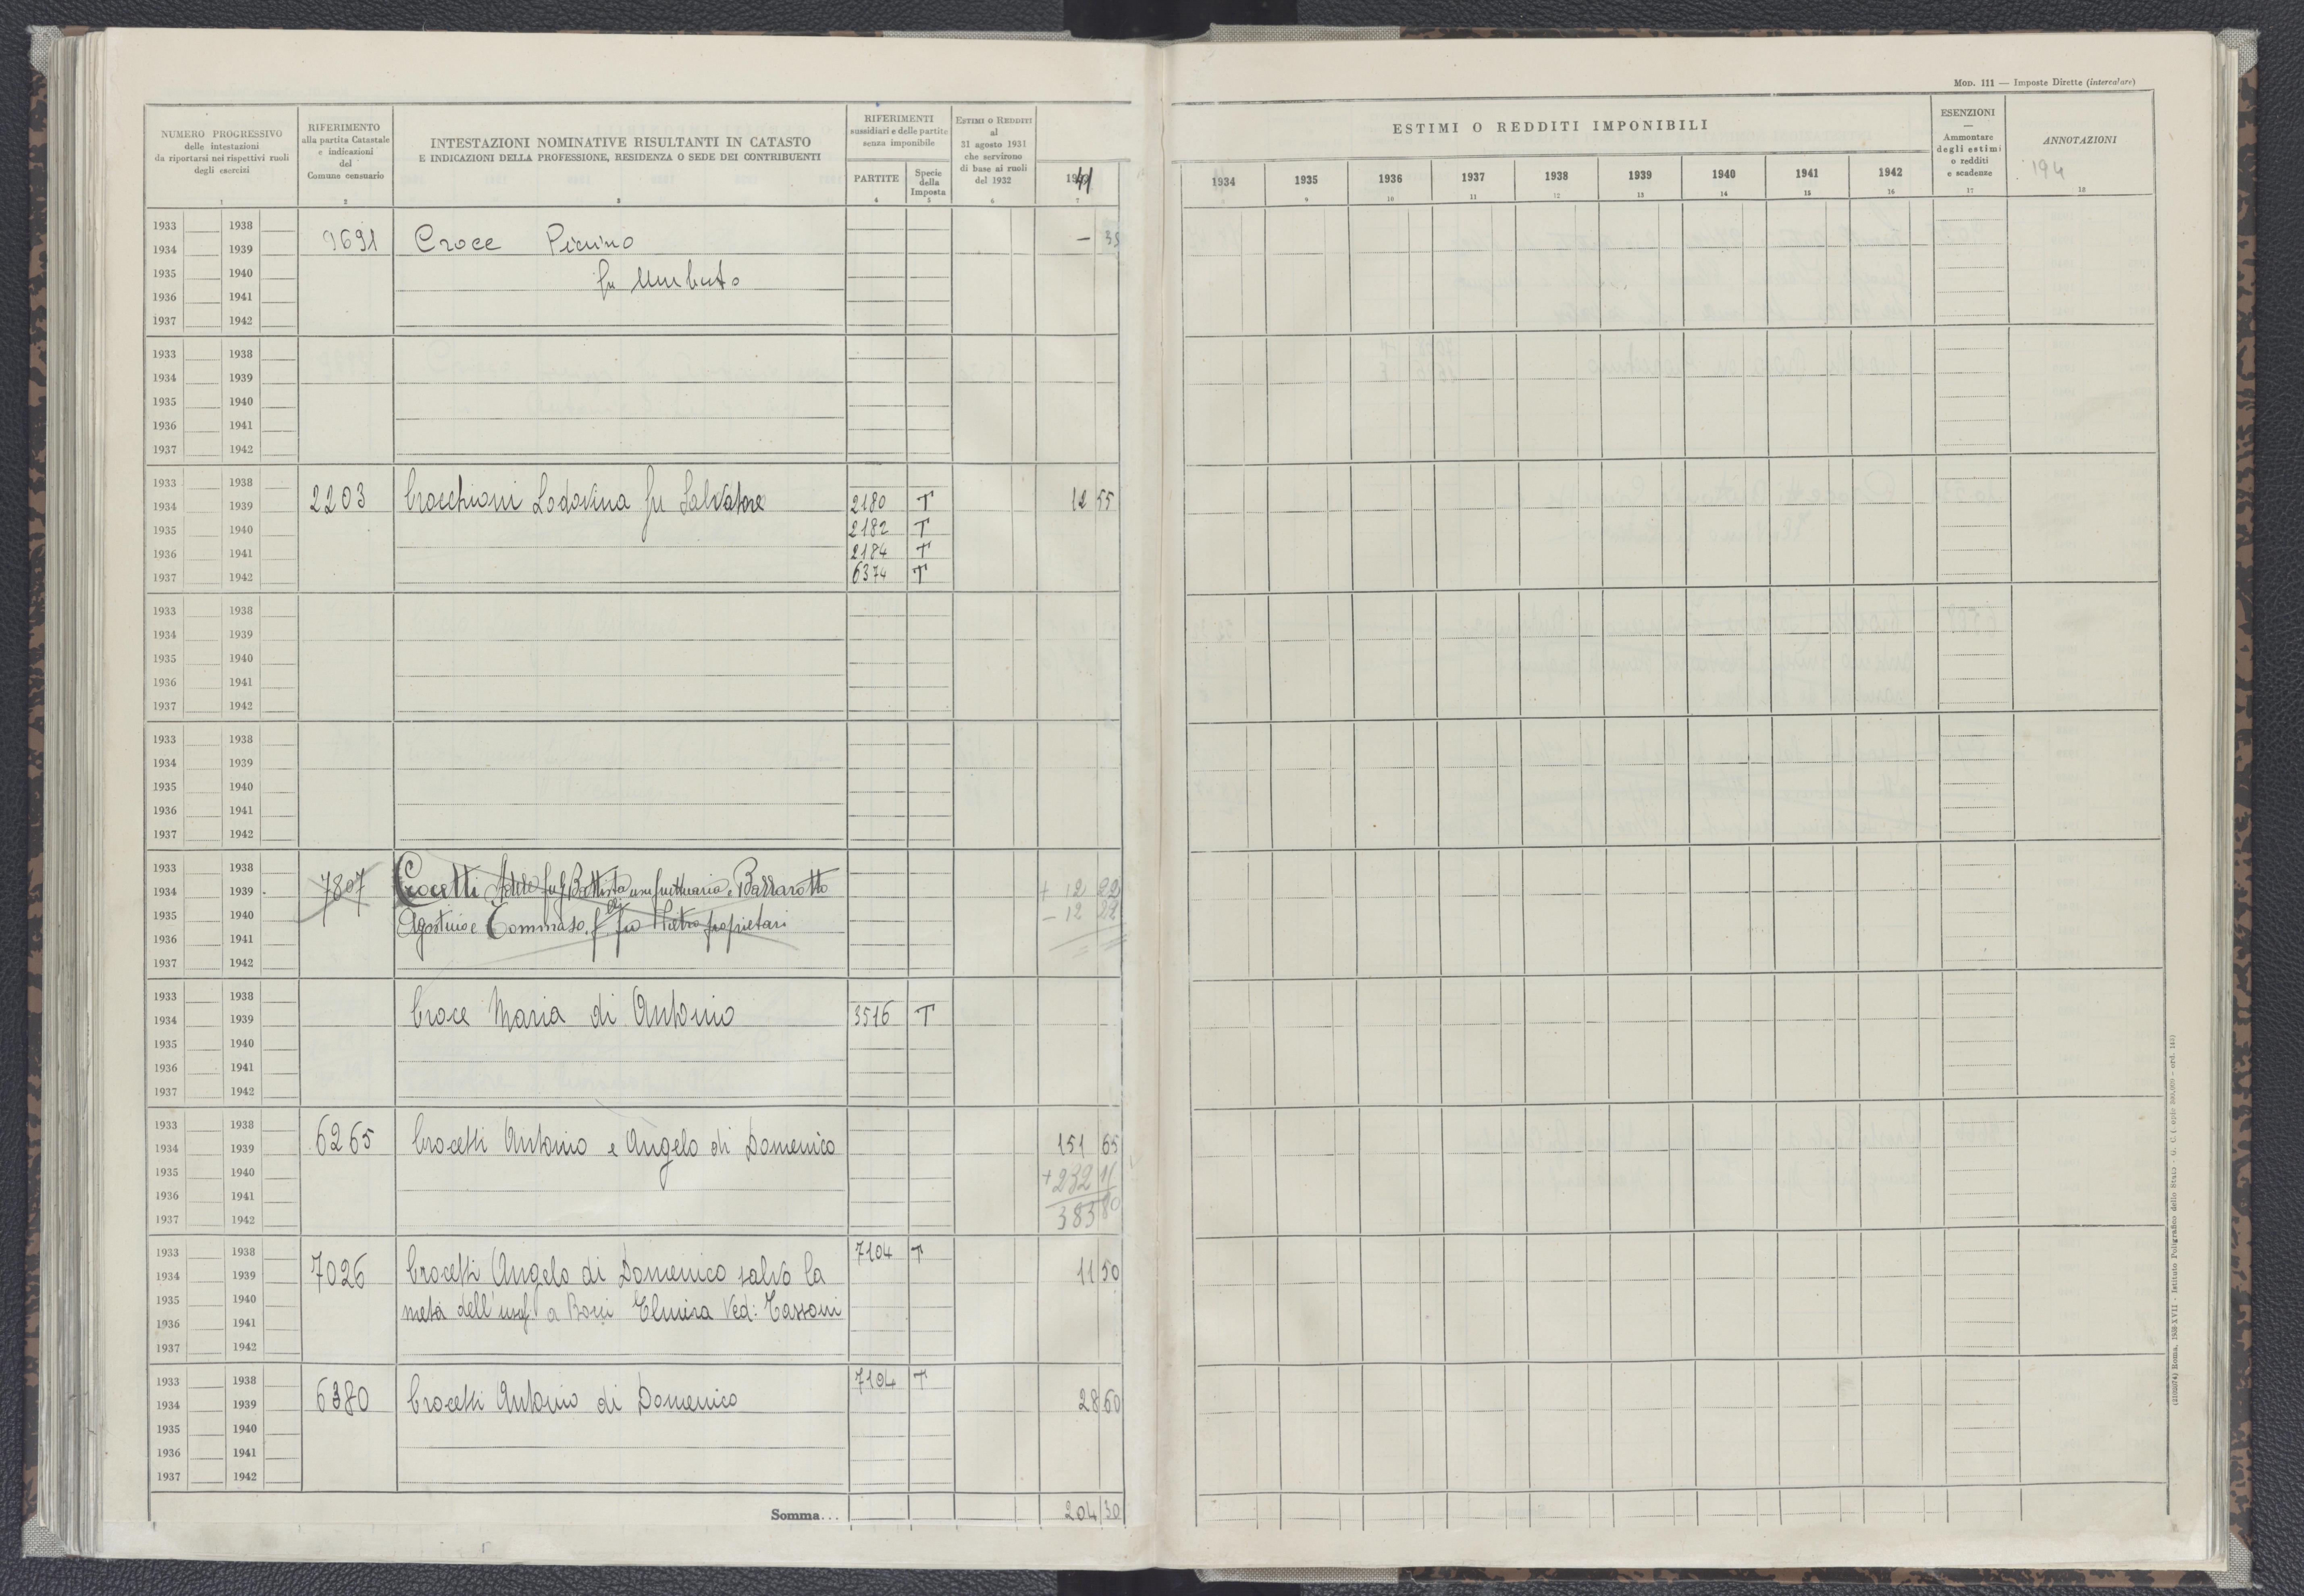 Mod. 111 — Imposte Dirette (intercalare)
NUMERO PROGRESSIVO
delle intestazioni
da riportarsi nei rispettivi ruoli
degli esercizi
RIFERIMENTO
alla partita Catastale
e indicazioni
del
Comune censuario
INTESTAZIONI NOMINATIVE RISULTANTI IN CATASTO
E INDICAZIONI DELLA PROFESSIONE, RESIDENZA O SEDE DEI CONTRIBUENTI
RIFERIMENTI
sussidiari e delle partite
senza imponibile
PARTITE
Specie
della
Imposta
ESTIMI O REDDITI
al
31 agosto 1931
che servirono
di base ai ruoli
del 1932
41
ESTIMI O REDDITI IMPONIBILI
1934 1935 1936 1937 1938 1939 1940 1941 1942
ESENZIONI
—
Ammontare
degli estimi
o redditi
e scadenze
ANNOTAZIONI
194
1 2 3 4 5 6 7 9 10 11 12 13 14 15 16 17 18
1933 1938
1934 1939 9691 Croce Pierino — 35
1935 1940 fu Umberto
1936 1941
1937 1942
1933 1938
1934 1939
1935 1940
1936 1941
1937 1942
1933 1938
1934 1939 2203 Crocchioni Lodovina fu Salvatore 2180 T 12 55
1935 1940 2182 T
1936 1941 2184 T
1937 1942 6374 T
1933 1938
1934 1939
1935 1940
1936 1941
1937 1942
1933 1938
1934 1939
1935 1940
1936 1941
1937 1942
1933 1938
1934 1939 7807 Crocetti Battista usufruttuaria e Bazzarotto + 12 22
1935 1940 Agostino e Tommaso fu Pietro proprietari — 12 22
1936 1941
1937 1942
1933 1938
1934 1939 Croce Maria di Antonio 3516 T
1935 1940
1936 1941
1937 1942
1933 1938
1934 1939 6265 Crocetti Antonio e Angelo di Domenico 151 65
1935 1940 + 232 11
1936 1941
1937 1942 383 80
1933 1938 7104 T
1934 1939 7026 Crocetti Angelo di Domenico salvo la 11 50
1935 1940 metà dell'usuf. a Elmira Ved: Tassoni
1936 1941
1937 1942
1933 1938 7104 T
1934 1939 6380 Crocetti Antonio di Domenico 28 60
1935 1940
1936 1941
1937 1942
Somma... 204 30